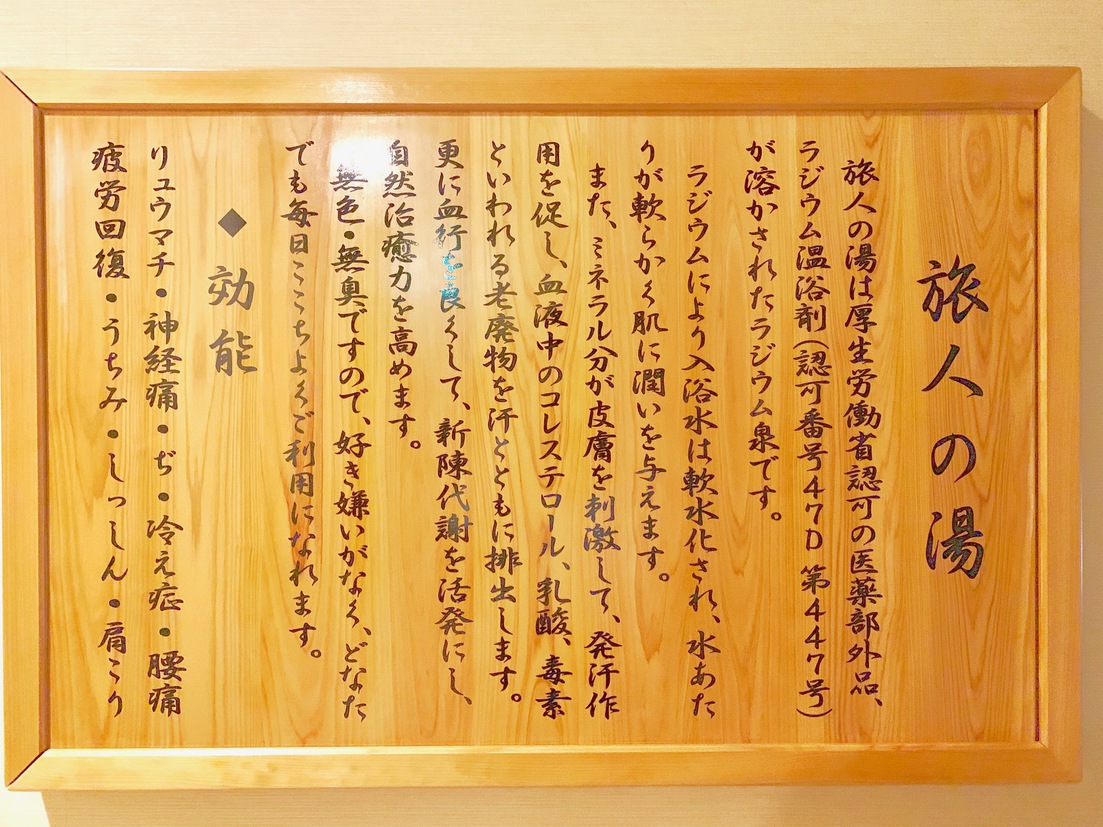 旅人の湯
旅人の湯は厚生労働省認可の医薬部外品、
ラジウム温浴剤(認可番号47D 第447号)
が溶かされたラジウム泉です。
ラジウムにより入浴水は軟水化され、水あた
りが軟らかく肌に潤いを与えます。
また、ミネラル分が皮膚を刺激して、発汗作
用を促し、血液中のコレステロール、乳酸、毒素
といわれる老廃物を汗とともに排出します。
更に血行を良くして、新陳代謝を活発にし、
自然治癒力を高めます。
無色・無臭ですので、好き嫌いがなく、どなた
でも毎日ここちよくご利用になれます。
◆効能
リュウマチ・神経痛・ぢ・冷え症・腰痛
疲労回復・うちみ・しっしん・肩こり